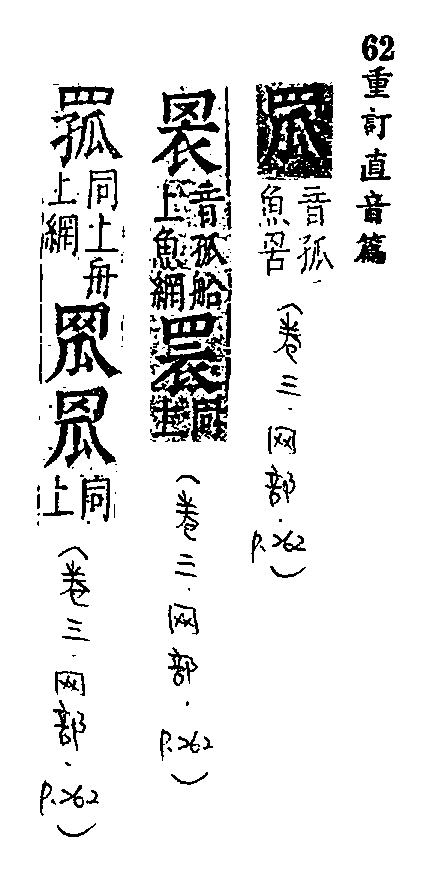 62重訂直音篇
罛
音孤
魚罟
(卷三.网部.P.262)
音孤船
上魚網
同
上
(卷三.网部.P.262)
同上舟
上網
同
上
(卷三.网部.P.262)